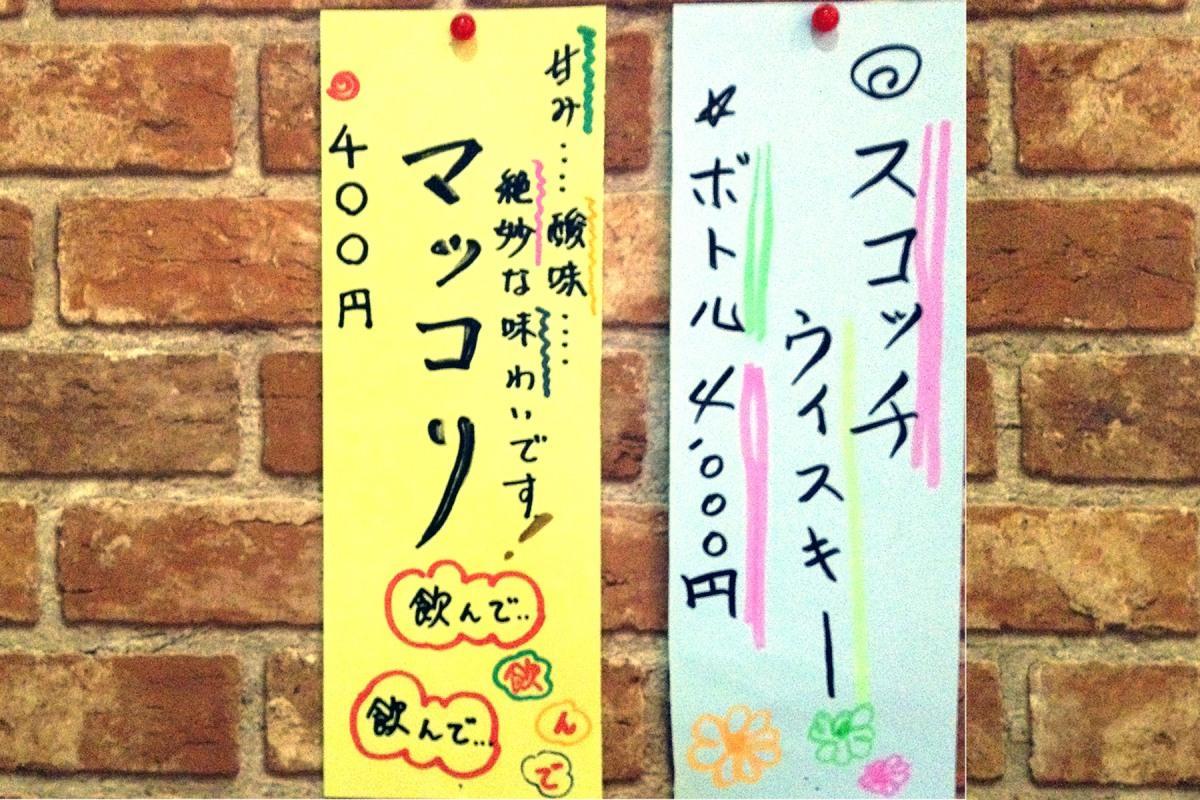 ◎スコッチ
ウィスキー
☆ボトル 4,000円
甘み‥‥酸味‥‥
絶妙な味わいです!
マッコリ
400円
飲んで‥
飲んで…
飲んで